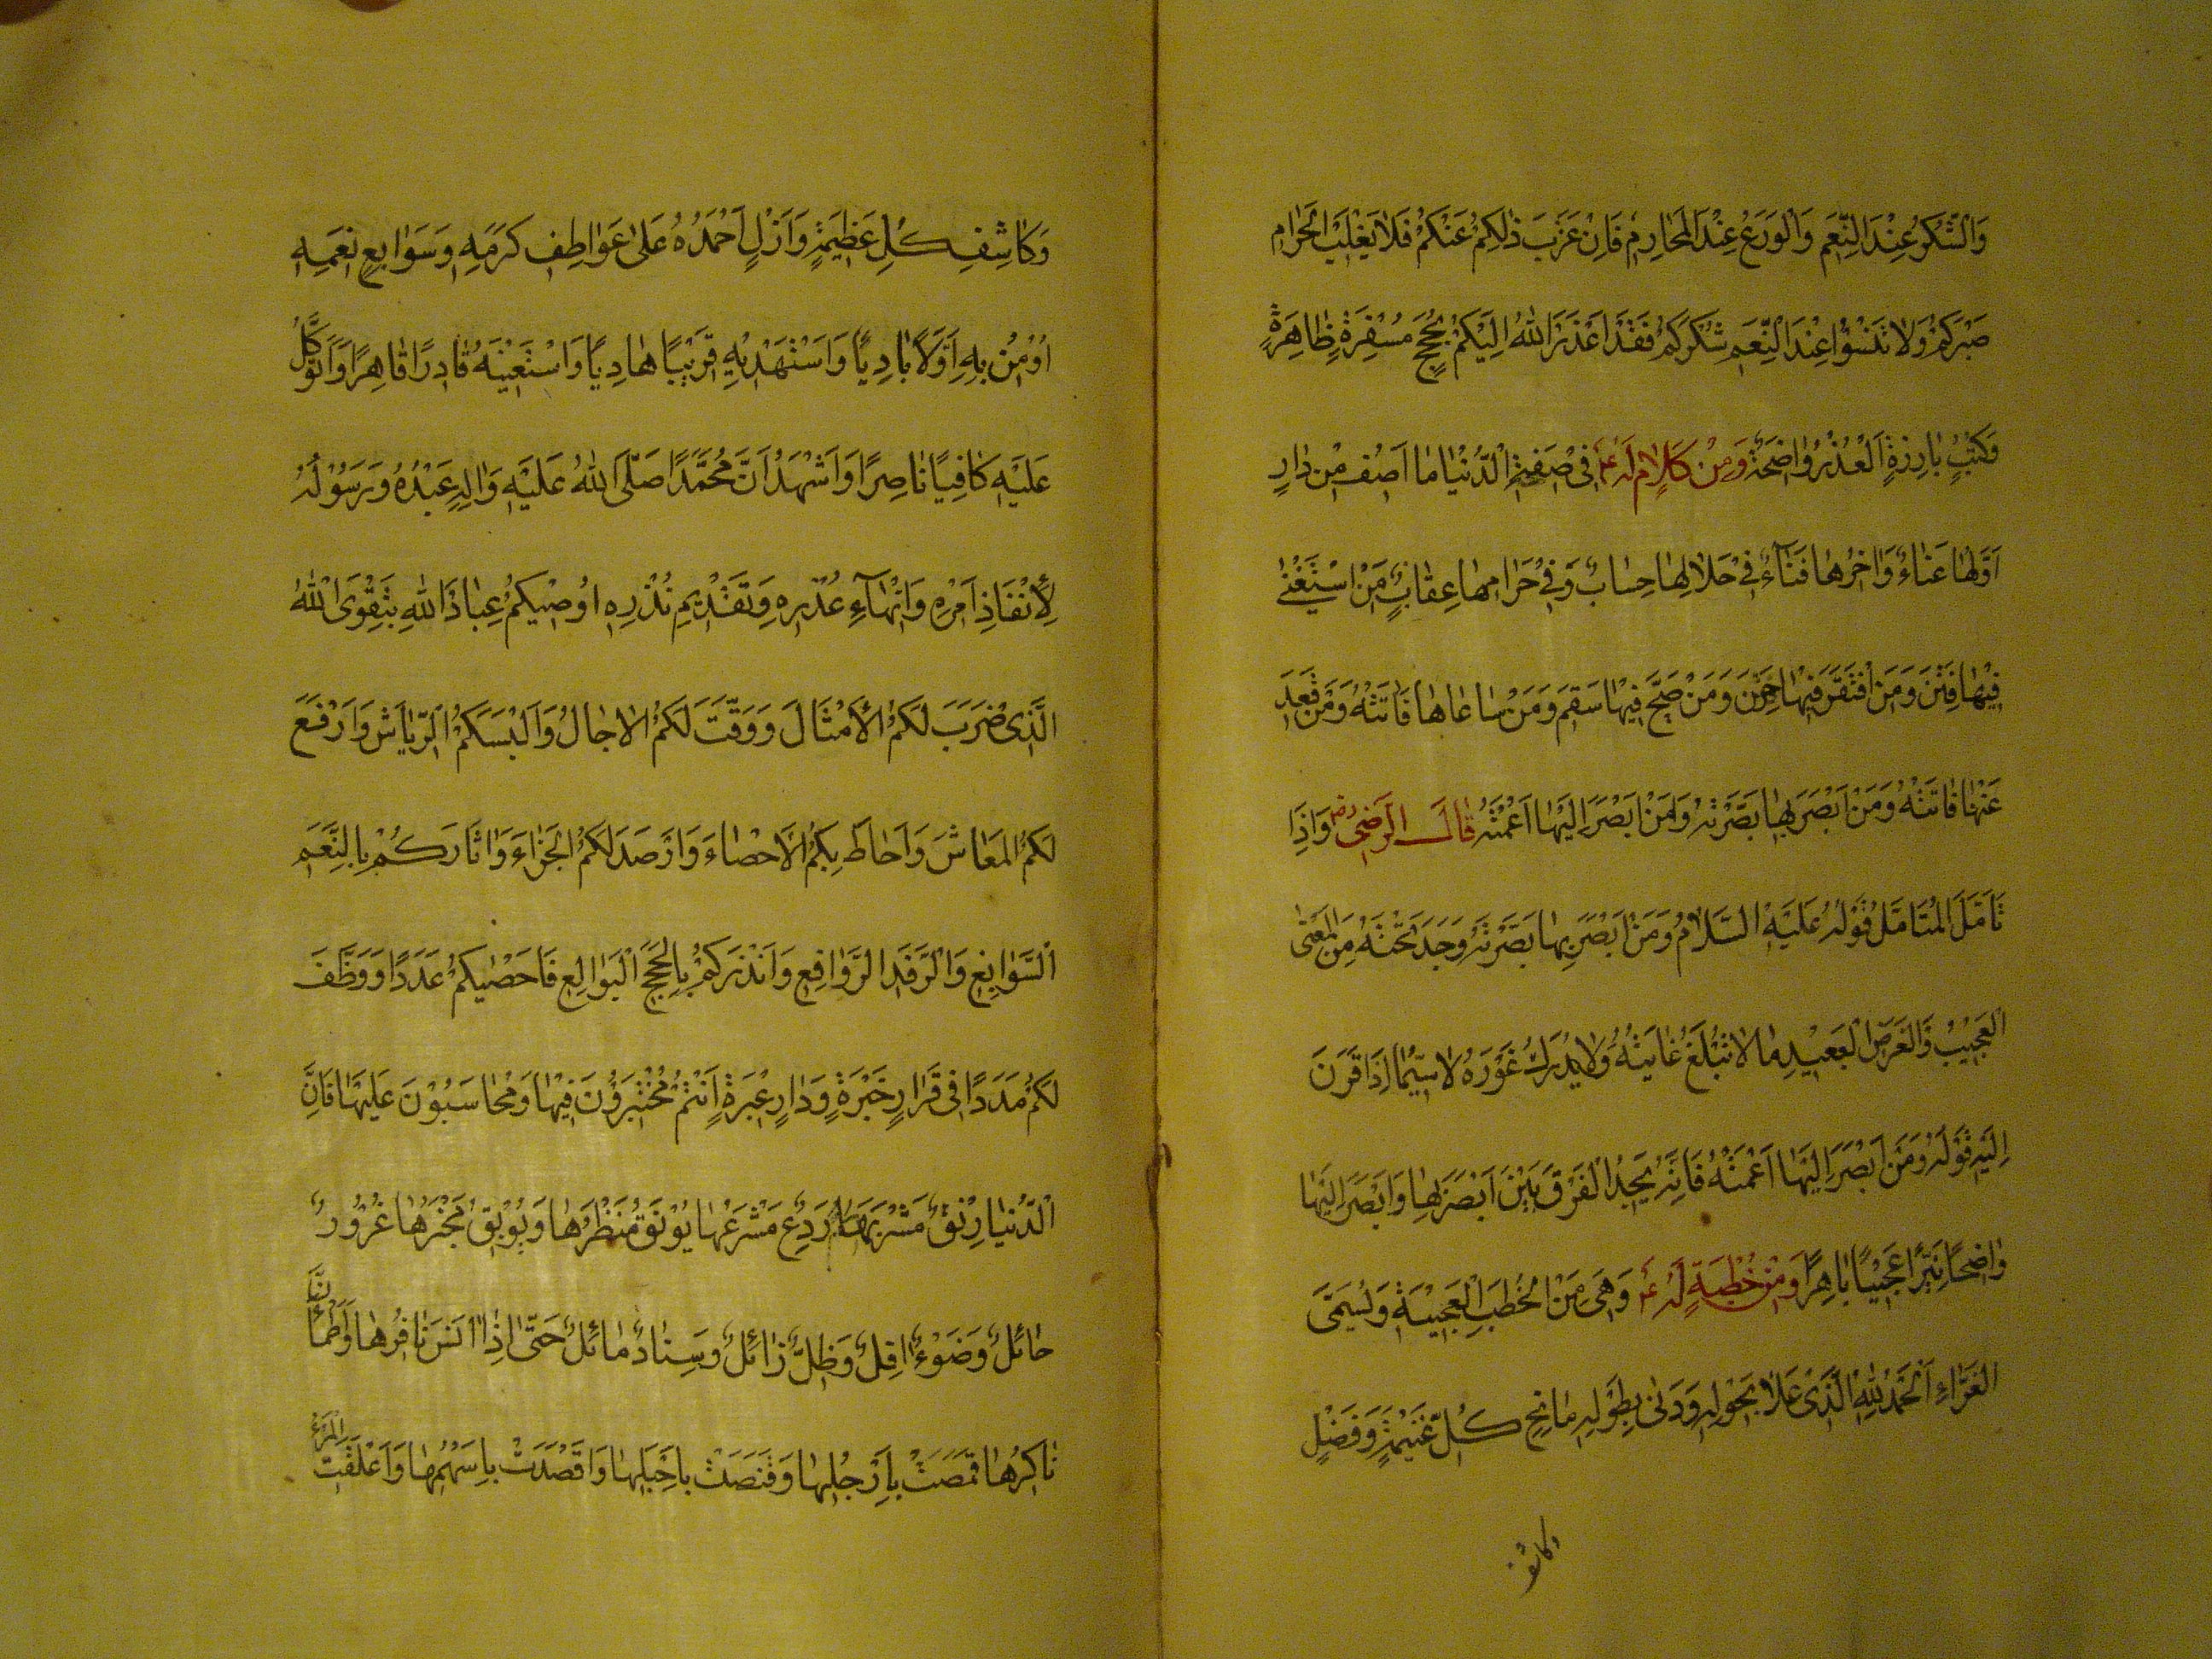 وَالشُّكْرُ عِنْدَ النِّعَمِ وَالْوَرَعُ عِنْدَ الْمَحَارِمِ فَاِنْ عَزَبَ ذٰلِكُمْ عَنْكُمْ فَلَا يَغْلِبِ الْحَرَامُ
صَبْرَكُمْ وَلَا تَنْسَوْا عِنْدَ النِّعَمِ شُكْرَكُمْ فَقَدْ اَعْذَرَ اللهُ اِلَيْكُمْ بِحُجَجٍ مُسْفِرَةٍ ظَاهِرَةٍ
وَكُتُبٍ بَارِزَةِ الْعُذْرِ وَاضِحَةٍ وَمِنْ كَلَامٍ لَهُ ع فِي صِفَةِ الدُّنْيَا مَا اَصِفُ مِنْ دَارٍ
اَوَّلُهَا عَنَاءٌ وَاٰخِرُهَا فَنَاءٌ فِي حَلَالِهَا حِسَابٌ وَفِي حَرَامِهَا عِقَابٌ مَنِ اسْتَغْنٰى
فِيهَا فُتِنَ وَمَنِ افْتَقَرَ فِيهَا حَزِنَ وَمَنْ صَحَّ فِيهَا سَقِمَ وَمَنْ سَاعَاهَا فَاتَتْهُ وَمَنْ قَعَدَ
عَنْهَا فَاتَتْهُ وَمَنْ اَبْصَرَ بِهَا بَصَّرَتْهُ وَمَنْ اَبْصَرَ اِلَيْهَا اَعْمَتْهُ قَالَ الرَّضِي رض وَاِذَا
تَاَمَّلَ الْمُتَاَمِّلُ قَوْلَهُ عَلَيْهِ السَّلَامُ وَمَنْ اَبْصَرَ بِهَا بَصَّرَتْهُ وَجَدَ تَحْتَهُ مِنَ الْمَعْنَى
الْعَجِيْبِ وَالْغَرَضِ الْبَعِيْدِ مَا لَا تُبْلَغُ غَايَتُهُ وَلَا يُدْرَكُ غَوْرُهُ لَا سِيَّمَا اِذَا قَرَنَ
اِلَيْهِ قَوْلَهُ وَمَنْ اَبْصَرَ اِلَيْهَا اَعْمَتْهُ فَاِنَّهُ يَجِدُ الْفَرْقَ بَيْنَ اَبْصَرَ بِهَا وَاَبْصَرَ اِلَيْهَا
وَاضِحًا نَيِّرًا عَجِيْبًا بَاهِرًا وَمِنْ خُطْبَةٍ لَهُ ع وَهِيَ مِنَ الْخُطَبِ الْعَجِيْبَةِ وَتُسَمَّى
الْغَرَّاءِ اَلْحَمْدُ لِلّٰهِ الَّذِي عَلَا بِحَوْلِهِ وَدَنٰى بِطَوْلِهِ مَانِحِ كُلِّ غَنِيْمَةٍ وَفَضْلٍ
وكاشف
وَكَاشِفِ كُلِّ عَظِيْمَةٍ وَاَزْلٍ اَحْمَدُهُ عَلٰى عَوَاطِفِ كَرَمِهِ وَسَوَابِغِ نِعَمِهِ
اُوْمِنُ بِهِ اَوَّلًا بَادِيًا وَاَسْتَهْدِيْهِ قَرِيْبًا هَادِيًا وَاَسْتَعِيْنُهُ قَادِرًا قَاهِرًا وَاَتَوَكَّلُ
عَلَيْهِ كَافِيًا نَاصِرًا وَاَشْهَدُ اَنَّ مُحَمَّدًا صَلَّى اللهُ عَلَيْهِ وَاٰلِهِ عَبْدُهُ وَرَسُوْلُهُ
لِأَنْفَاذِ اَمْرِهِ وَاِنْهَاءِ عُذْرِهِ وَتَقْدِيْمِ نُذُرِهِ اُوْصِيْكُمْ عِبَادَ اللهِ بِتَقْوَى اللهِ
الَّذِي ضَرَبَ لَكُمُ الْأَمْثَالَ وَوَقَّتَ لَكُمُ الْاٰجَالَ وَاَلْبَسَكُمُ الرِّيَاشَ وَاَرْفَعَ
لَكُمُ الْمَعَاشَ وَاَحَاطَ بِكُمُ الْاِحْصَاءَ وَاَرْصَدَ لَكُمُ الْجَزَاءَ وَاٰثَارَكُمْ بِالنِّعَمِ
السَّوَابِغِ وَالرِّفَدِ الرَّوَافِعِ وَاَنْذَرَكُمْ بِالْحُجَجِ الْبَوَالِغِ فَاَحْصٰيكُمْ عَدَدًا وَوَظَّفَ
لَكُمْ مَدَدًا فِي قَرَارِ خِبْرَةٍ وَدَارِ عِبْرَةٍ اَنْتُمْ مُخْتَبَرُوْنَ فِيْهَا وَمُحَاسَبُوْنَ عَلَيْهَا فَاِنَّ
الدُّنْيَا رَنِقٌ مَشْرَبُهَا رَدِغٌ مَشْرَعُهَا يُوْنِقُ مَنْظَرُهَا وَيُوْبِقُ مَخْبَرُهَا غُرُوْرٌ
حَائِلٌ وَضَوْءٌ اٰفِلٌ وَظِلٌّ زَائِلٌ وَسِنَادٌ مَائِلٌ حَتّٰى اِذَا اَنَسَ نَافِرُهَا وَاطْمَأَنَّ
نَاكِرُهَا قَمَصَتْ بِاَرْجُلِهَا وَقَنَصَتْ بِاَحْبُلِهَا وَاَقْصَدَتْ بِاَسْهُمِهَا وَاَعْلَقَتِ الْمَرْءَ